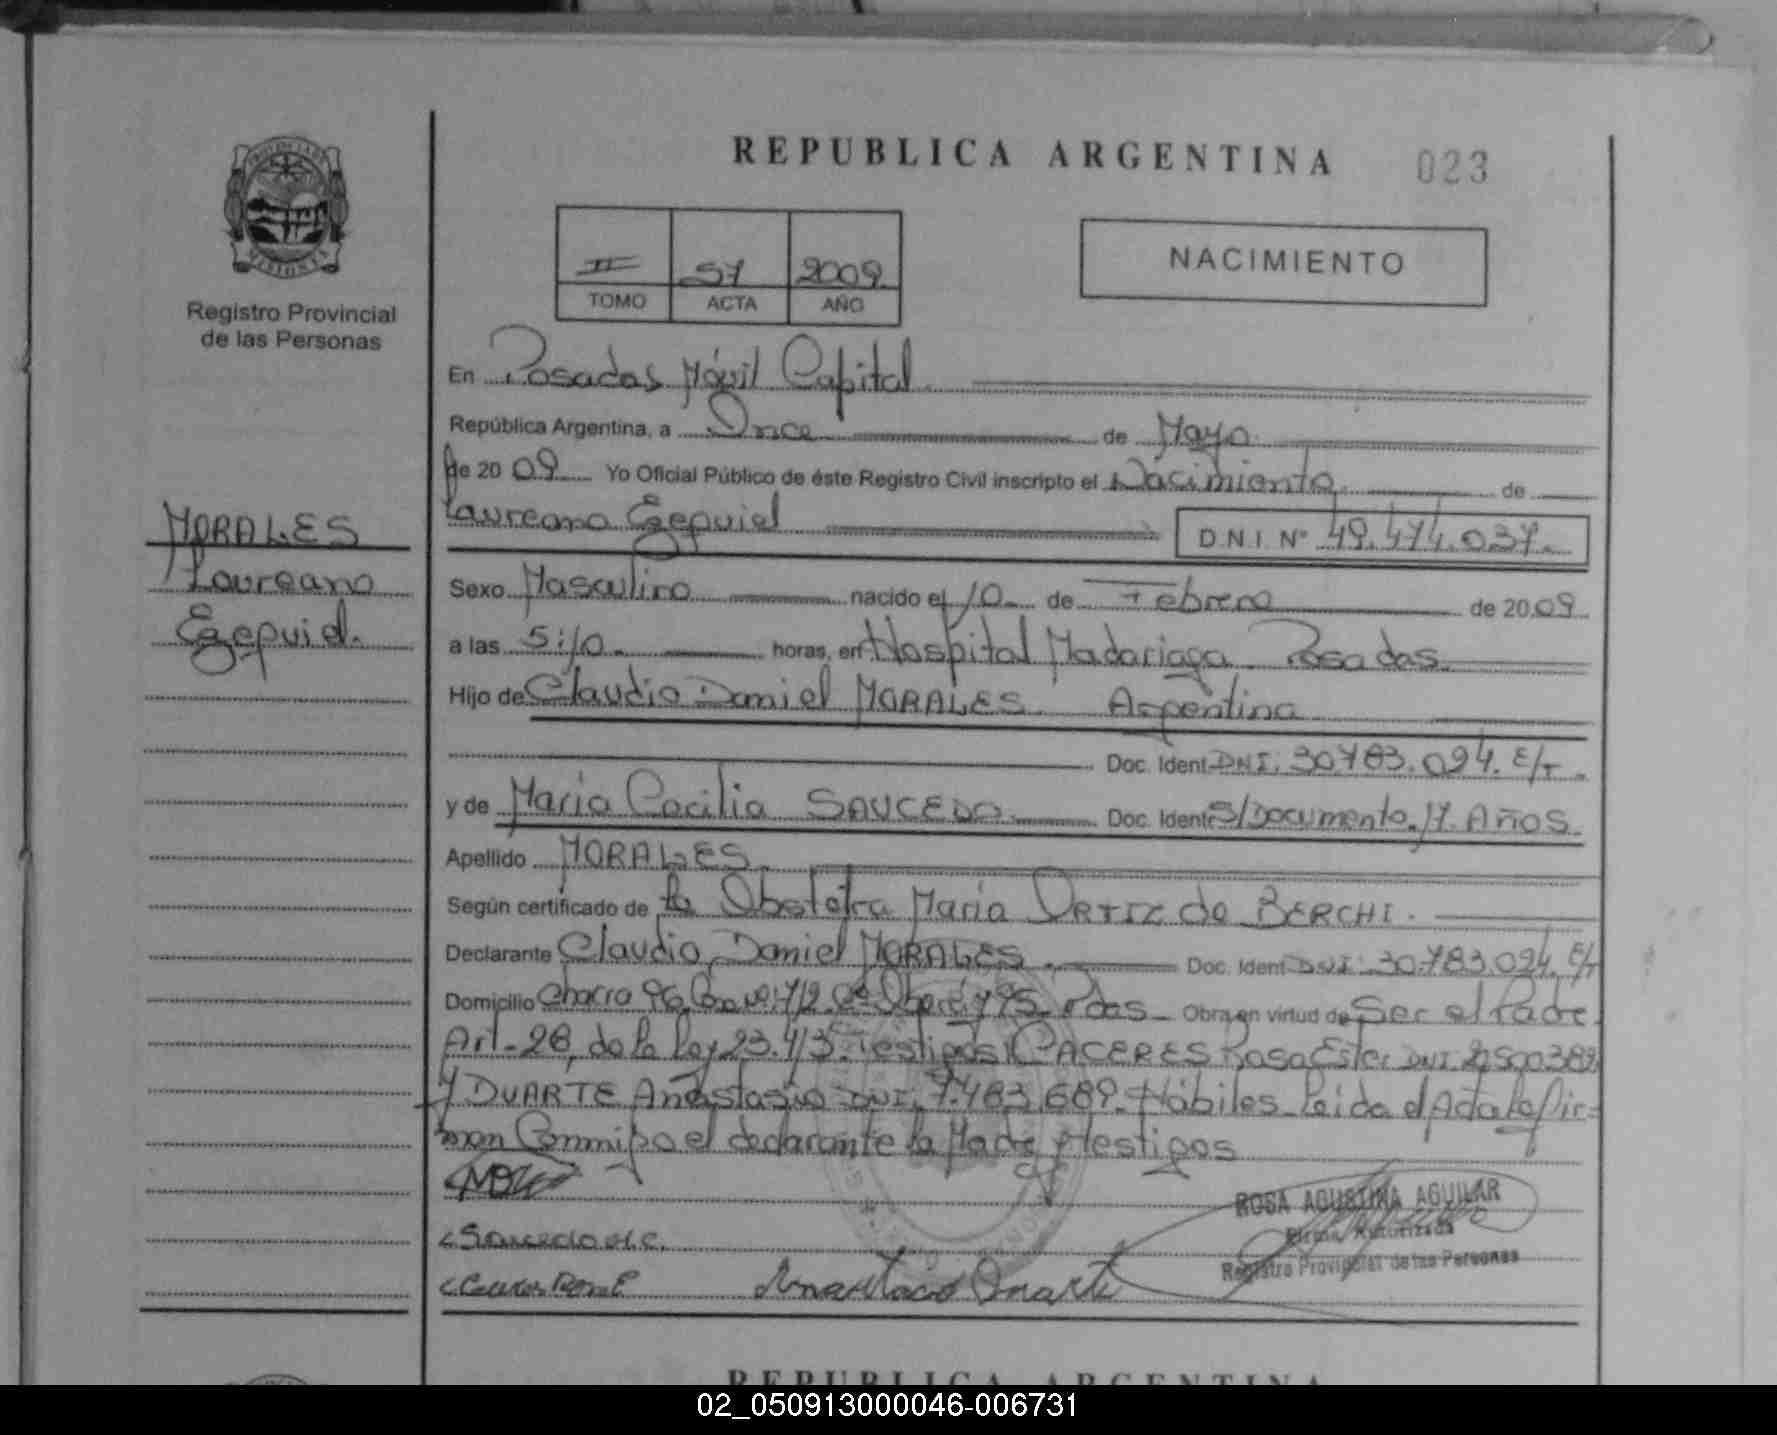 REPUBLICA ARGENTINA 023
PROVINCIA DE
MISIONES
Registro Provincial
de las Personas
II 57 2009
TOMO ACTA AÑO
NACIMIENTO
En Posadas Móvil Capital.
República Argentina, a Once de Mayo
de 20 09 Yo Oficial Público de éste Registro Civil inscripto el Nacimiento de
Laureano Ezequiel D.N.I. Nº 49.474.037.
MORALES
Laureano
Ezequiel.
Sexo Masculino nacido el 10 de Febrero de 2009
a las 5:10. horas, en Hospital Madariaga Posadas.
Hijo de Claudio Daniel MORALES. Argentina
Doc. Ident. DNI. 30.783.094. E/T.
y de María Cecilia SAUCEDO Doc. Ident. S/Documento. 17. Años.
Apellido MORALES
Según certificado de la Obstetra María ORTIZ de BERCHI.
Declarante Claudio Daniel MORALES. Doc. Ident. DNI: 30.783.094. E/T
Domicilio Chacra 96, Nº: 712. Pdas. Obra en virtud de Ser el Padre.
Art. 28, de la ley 23.413. Testigos CACERES Rosa Ester DNI.
y DUARTE Anastasio DNI. 7.483.689. Hábiles. leída el Acta la fir=
man Conmigo el declarante la Madre y testigos
Saucedo M.C.
Anastacio Duarte
ROSA AGUSTINA AGUILAR
Firma Autorizada
Registro Provincial de las Personas
REPUBLICA ARGENTINA
02_050913000046-006731